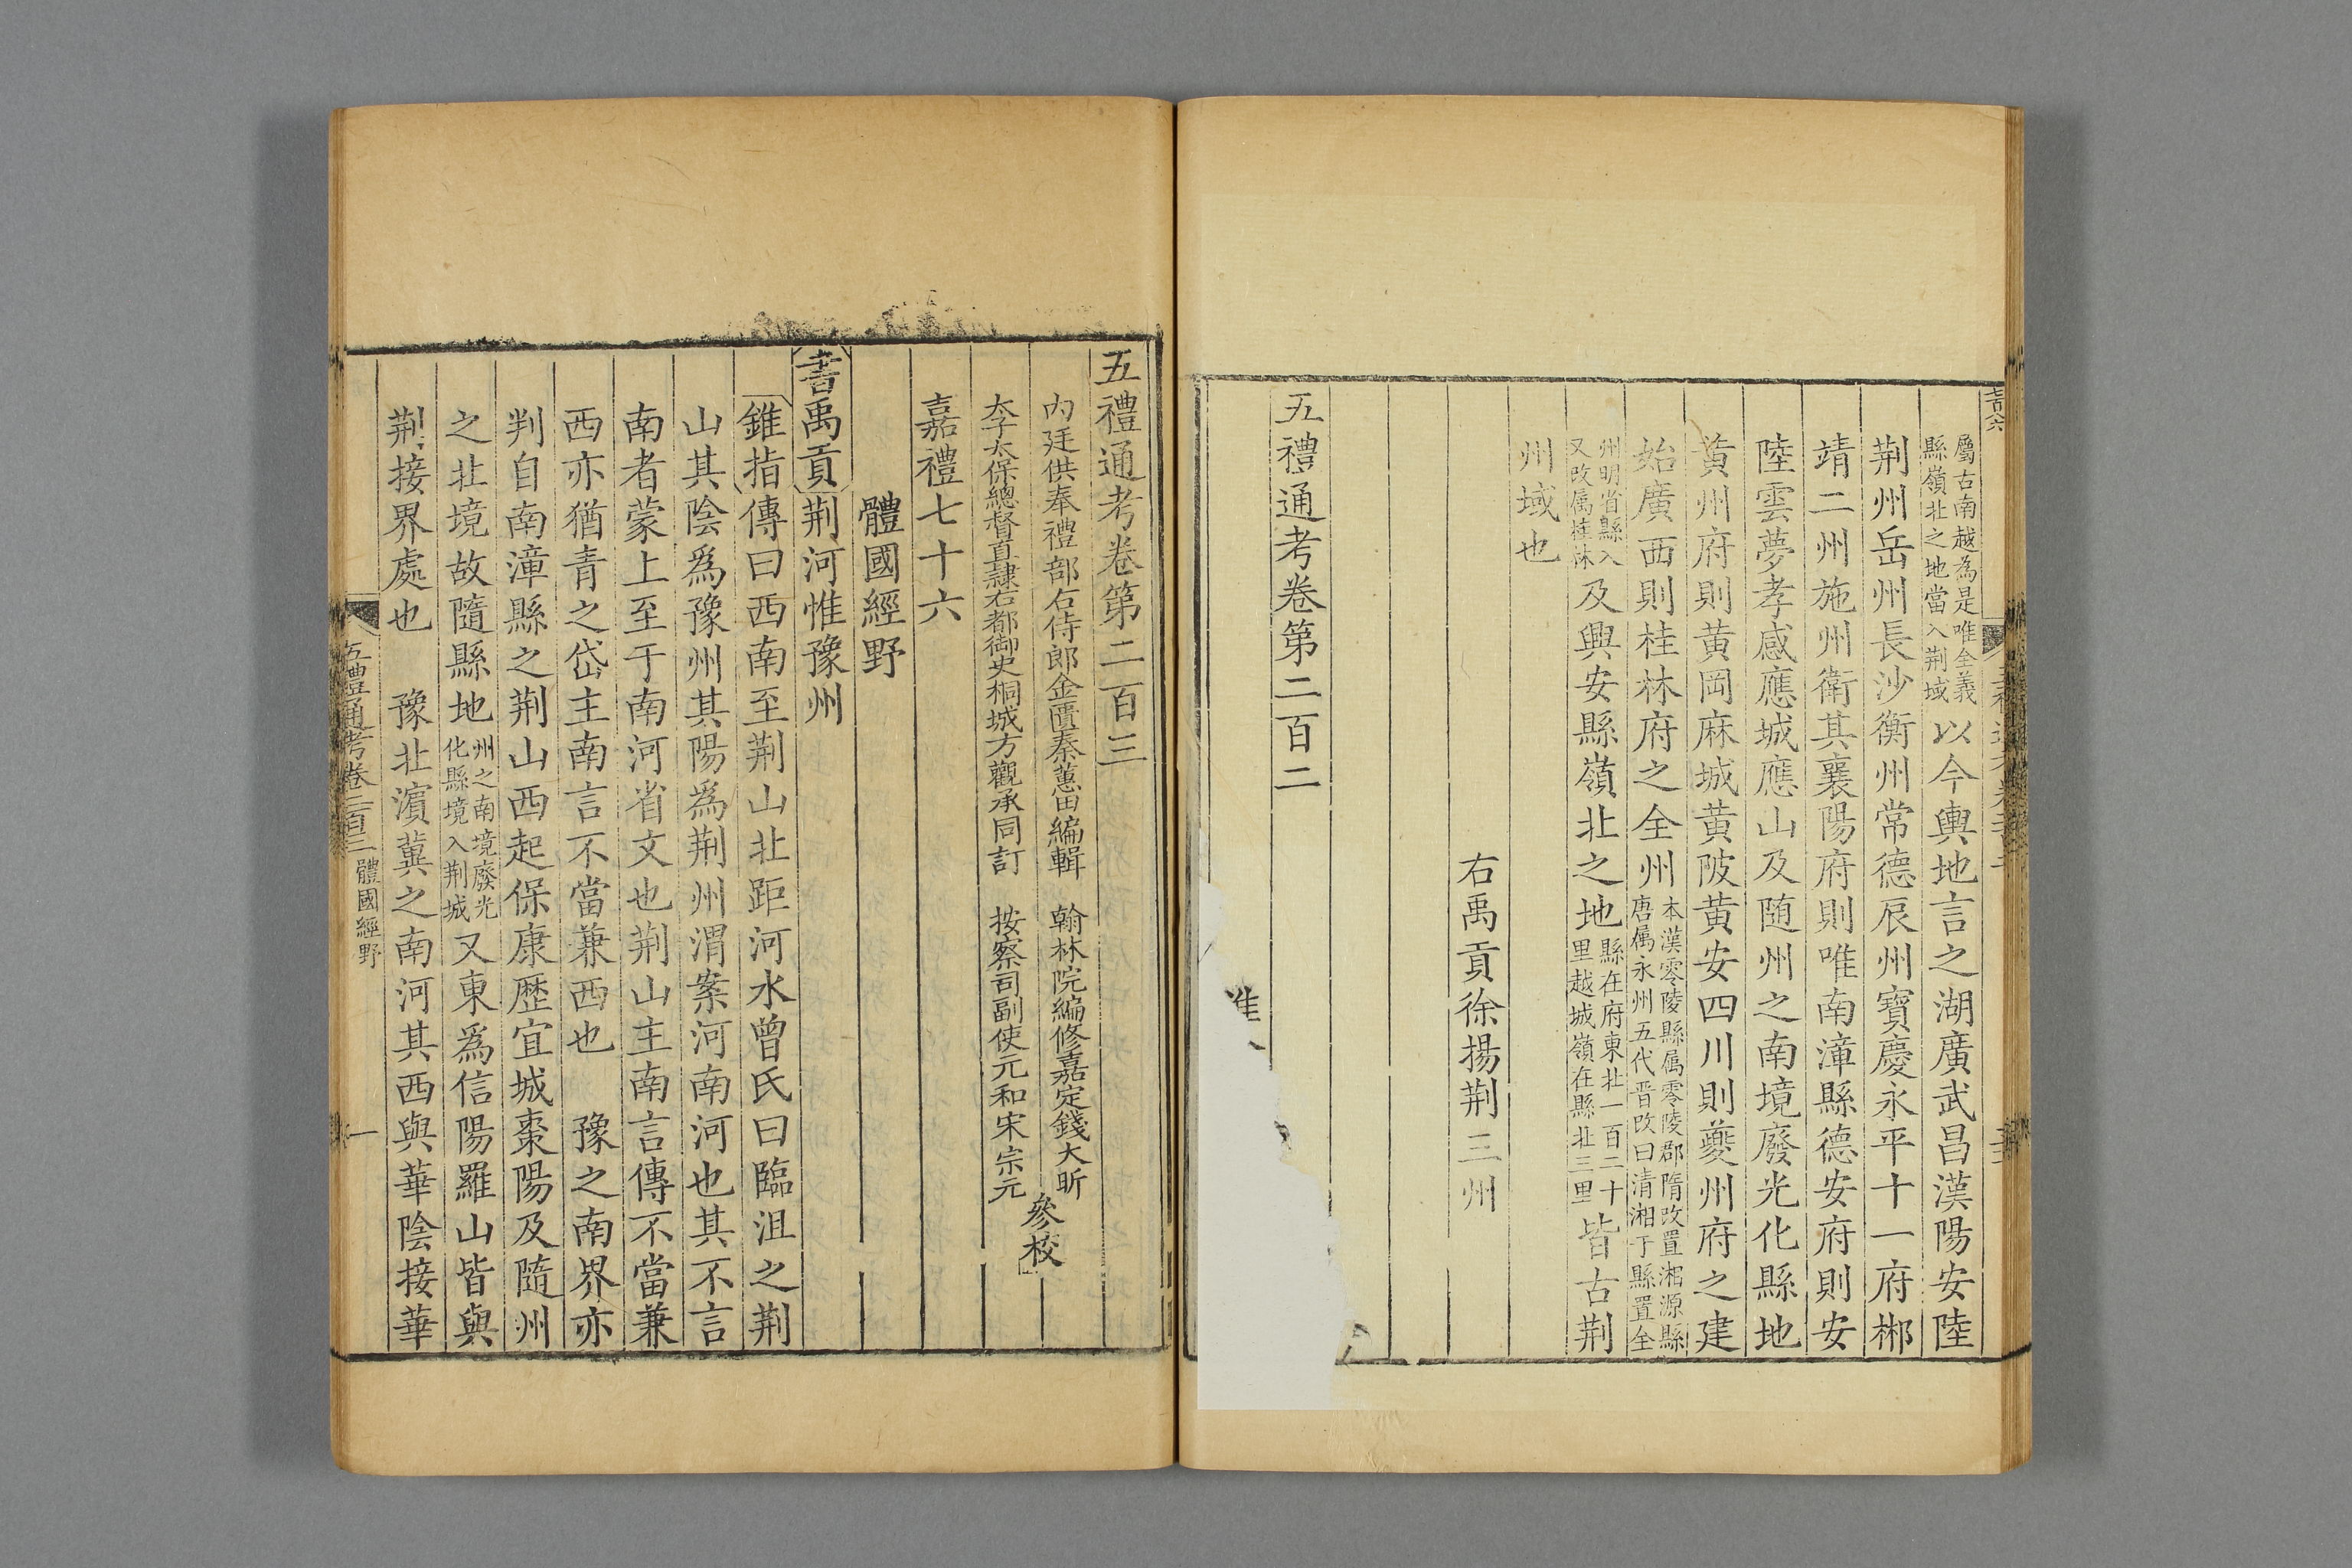 屬古南越為是唯全義
縣嶺北之地當入荆域
以今輿地言之湖廣武昌漢陽安陸
荆州岳州長沙衡州常德辰州寶慶永平十一府郴
靖二州施州衛其襄陽府則唯南漳縣德安府則安
陸雲夢孝感應城應山及随州之南境廢光化縣地
黄州府則黄岡麻城黄陂黄安四川則夔州府之建
始廣西則桂林府之全州
本漢零陵縣属零陵郡隋改置湘源縣
唐属永州五代晋改曰清湘于縣置全
州明省縣入
又改属桂林
及興安縣嶺北之地
縣在府東北一百二十
里越城嶺在縣北三里
皆古荆
州域也
右禹貢徐揚荆三州
五禮通考卷第二百二
五禮通考卷第二百三
内廷供奉禮部右侍郎金匱秦蕙田編輯 翰林院編修嘉定錢大昕
太子太保總督直隸右都御史桐城方觀承同訂 按察司副使元和宋宗元
參校
嘉禮七十六
體國經野
書禹貢荆河惟豫州
錐指傳曰西南至荆山北距河水曾氏曰臨沮之荆
山其陰爲豫州其陽爲荆州渭案河南河也其不言
南者蒙上至于南河省文也荆山主南言傳不當兼
西亦猶青之岱主南言不當兼西也 豫之南界亦
判自南漳縣之荆山西起保康歷宜城棗陽及隨州
之北境故隨縣地
州之南境廢光
化縣境入荆域
又東爲信陽羅山皆與
荆接界處也 豫北濱冀之南河其西與華陰接華
五禮通考卷二百三
體國經野
一